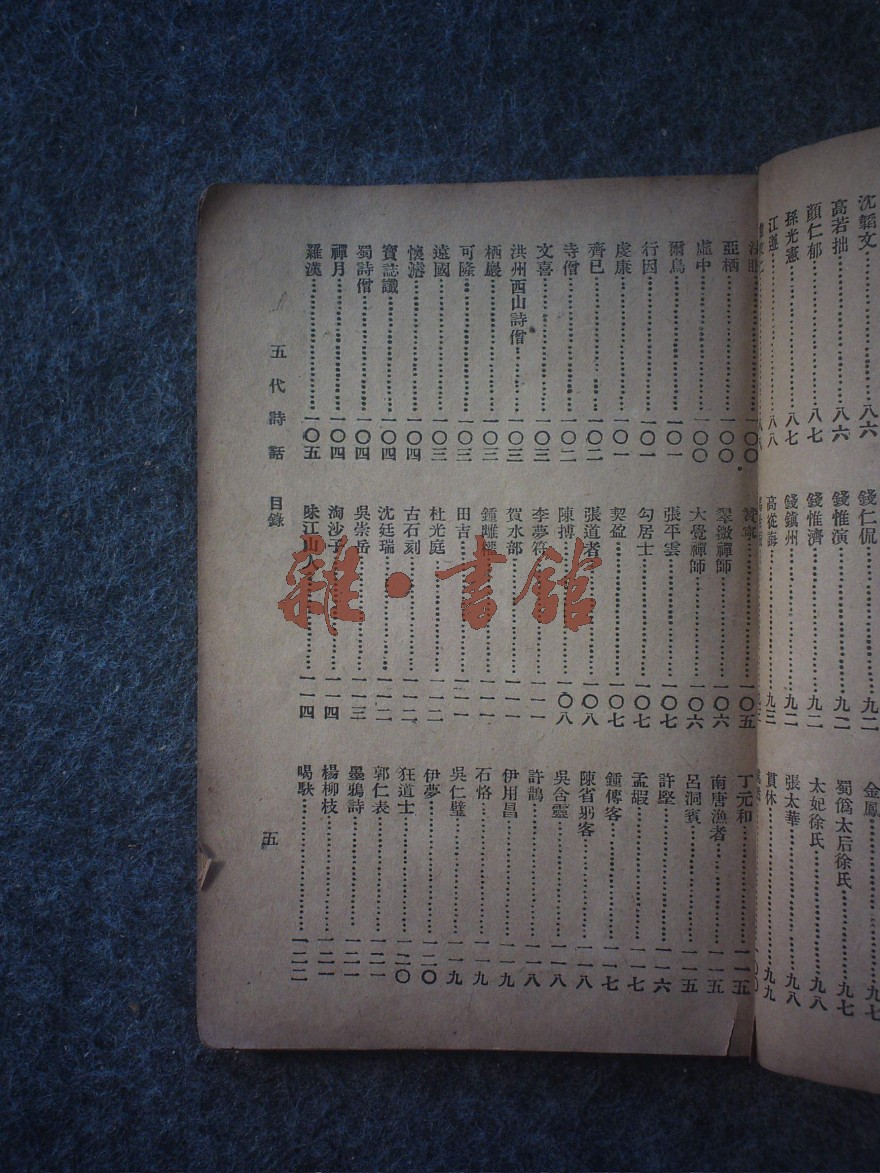 沈韜文……八六
高若拙……八六
顏仁郁……八七
孫光憲……八七
江遜……八八
錢仁侃……九二
錢惟演……九二
錢惟濟……九二
錢鎮州……九二
高從誨……九三
金鳳……九七
蜀僞太后徐氏……九七
太妃徐氏……九八
張太華……九八
貫休……九九
一〇〇
亞栖……一〇〇
處中……一〇〇
爾鳥……一〇一
行因……一〇一
虔康……一〇一
齊已……一〇二
寺僧……一〇二
文喜……一〇三
洪州西山詩僧……一〇三
栖巖……一〇三
可隆……一〇三
遠國……一〇三
懷濬……一〇四
寶誌讖……一〇四
蜀詩僧……一〇四
禪月……一〇四
羅漢……一〇五
贊寧……一〇五
翠微禪師……一〇六
大覺禪師……一〇六
張平雲……一〇七
勾居士……一〇七
契盈……一〇七
張道者……一〇八
陳摶……一〇八
李夢符……一一一
賀水部……一一一
鍾離權……一一一
田吉……一二一
杜光庭……一一二
古石刻……一一二
沈廷瑞……一一二
吳崇岳……一一三
淘沙子……一一四
味江山人……一一四
丁元和……一一五
南唐漁者……一一五
呂洞賓……一一五
許堅……一一六
孟嘏……一一七
鍾傳客……一一七
陳省躬客……一一八
吳含靈……一一八
許鵲……一一八
伊用昌……一一九
石恪……一一九
吳仁璧……一一九
伊夢……一二〇
狂道士……一二〇
郭仁表……一二一
墨鴉詩……一二一
楊柳枝……一二一
喝馱……一二二
五代詩話 目錄 五
雜·書館